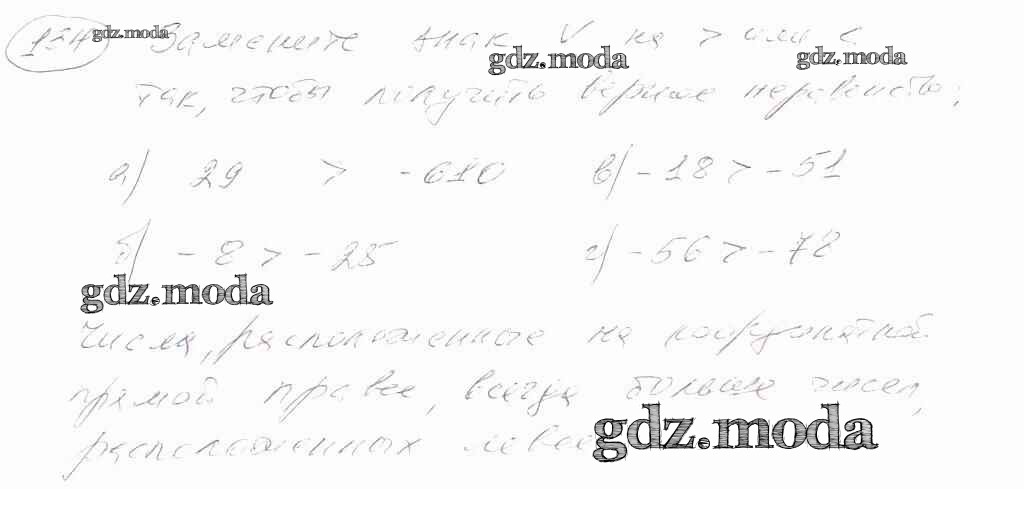 134 Замените знак V на > или <
так, чтобы получить верное неравенство:
а) 29 > -610 в) -18 > -51
б) -8 > -25 г) -56 > -78
Числа, расположенные на координатной
прямой правее, всегда больше чисел,
расположенных левее
gdz.moda
gdz.moda
gdz.moda
gdz.moda
gdz.moda